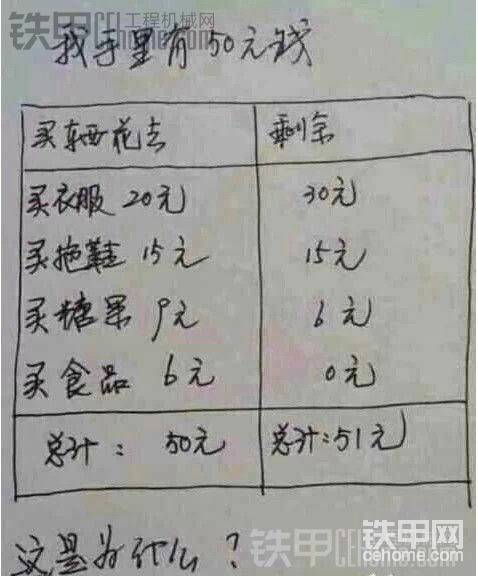 铁甲 工程机械网
CEHOME.COM
我手里有50元钱
买东西花去 剩余
买衣服 20元 30元
买拖鞋 15元 15元
买糖果 9元 6元
买食品 6元 0元
总计： 50元 总计：51元
这是为什么？
铁甲
铁甲网
CEHOME.COM